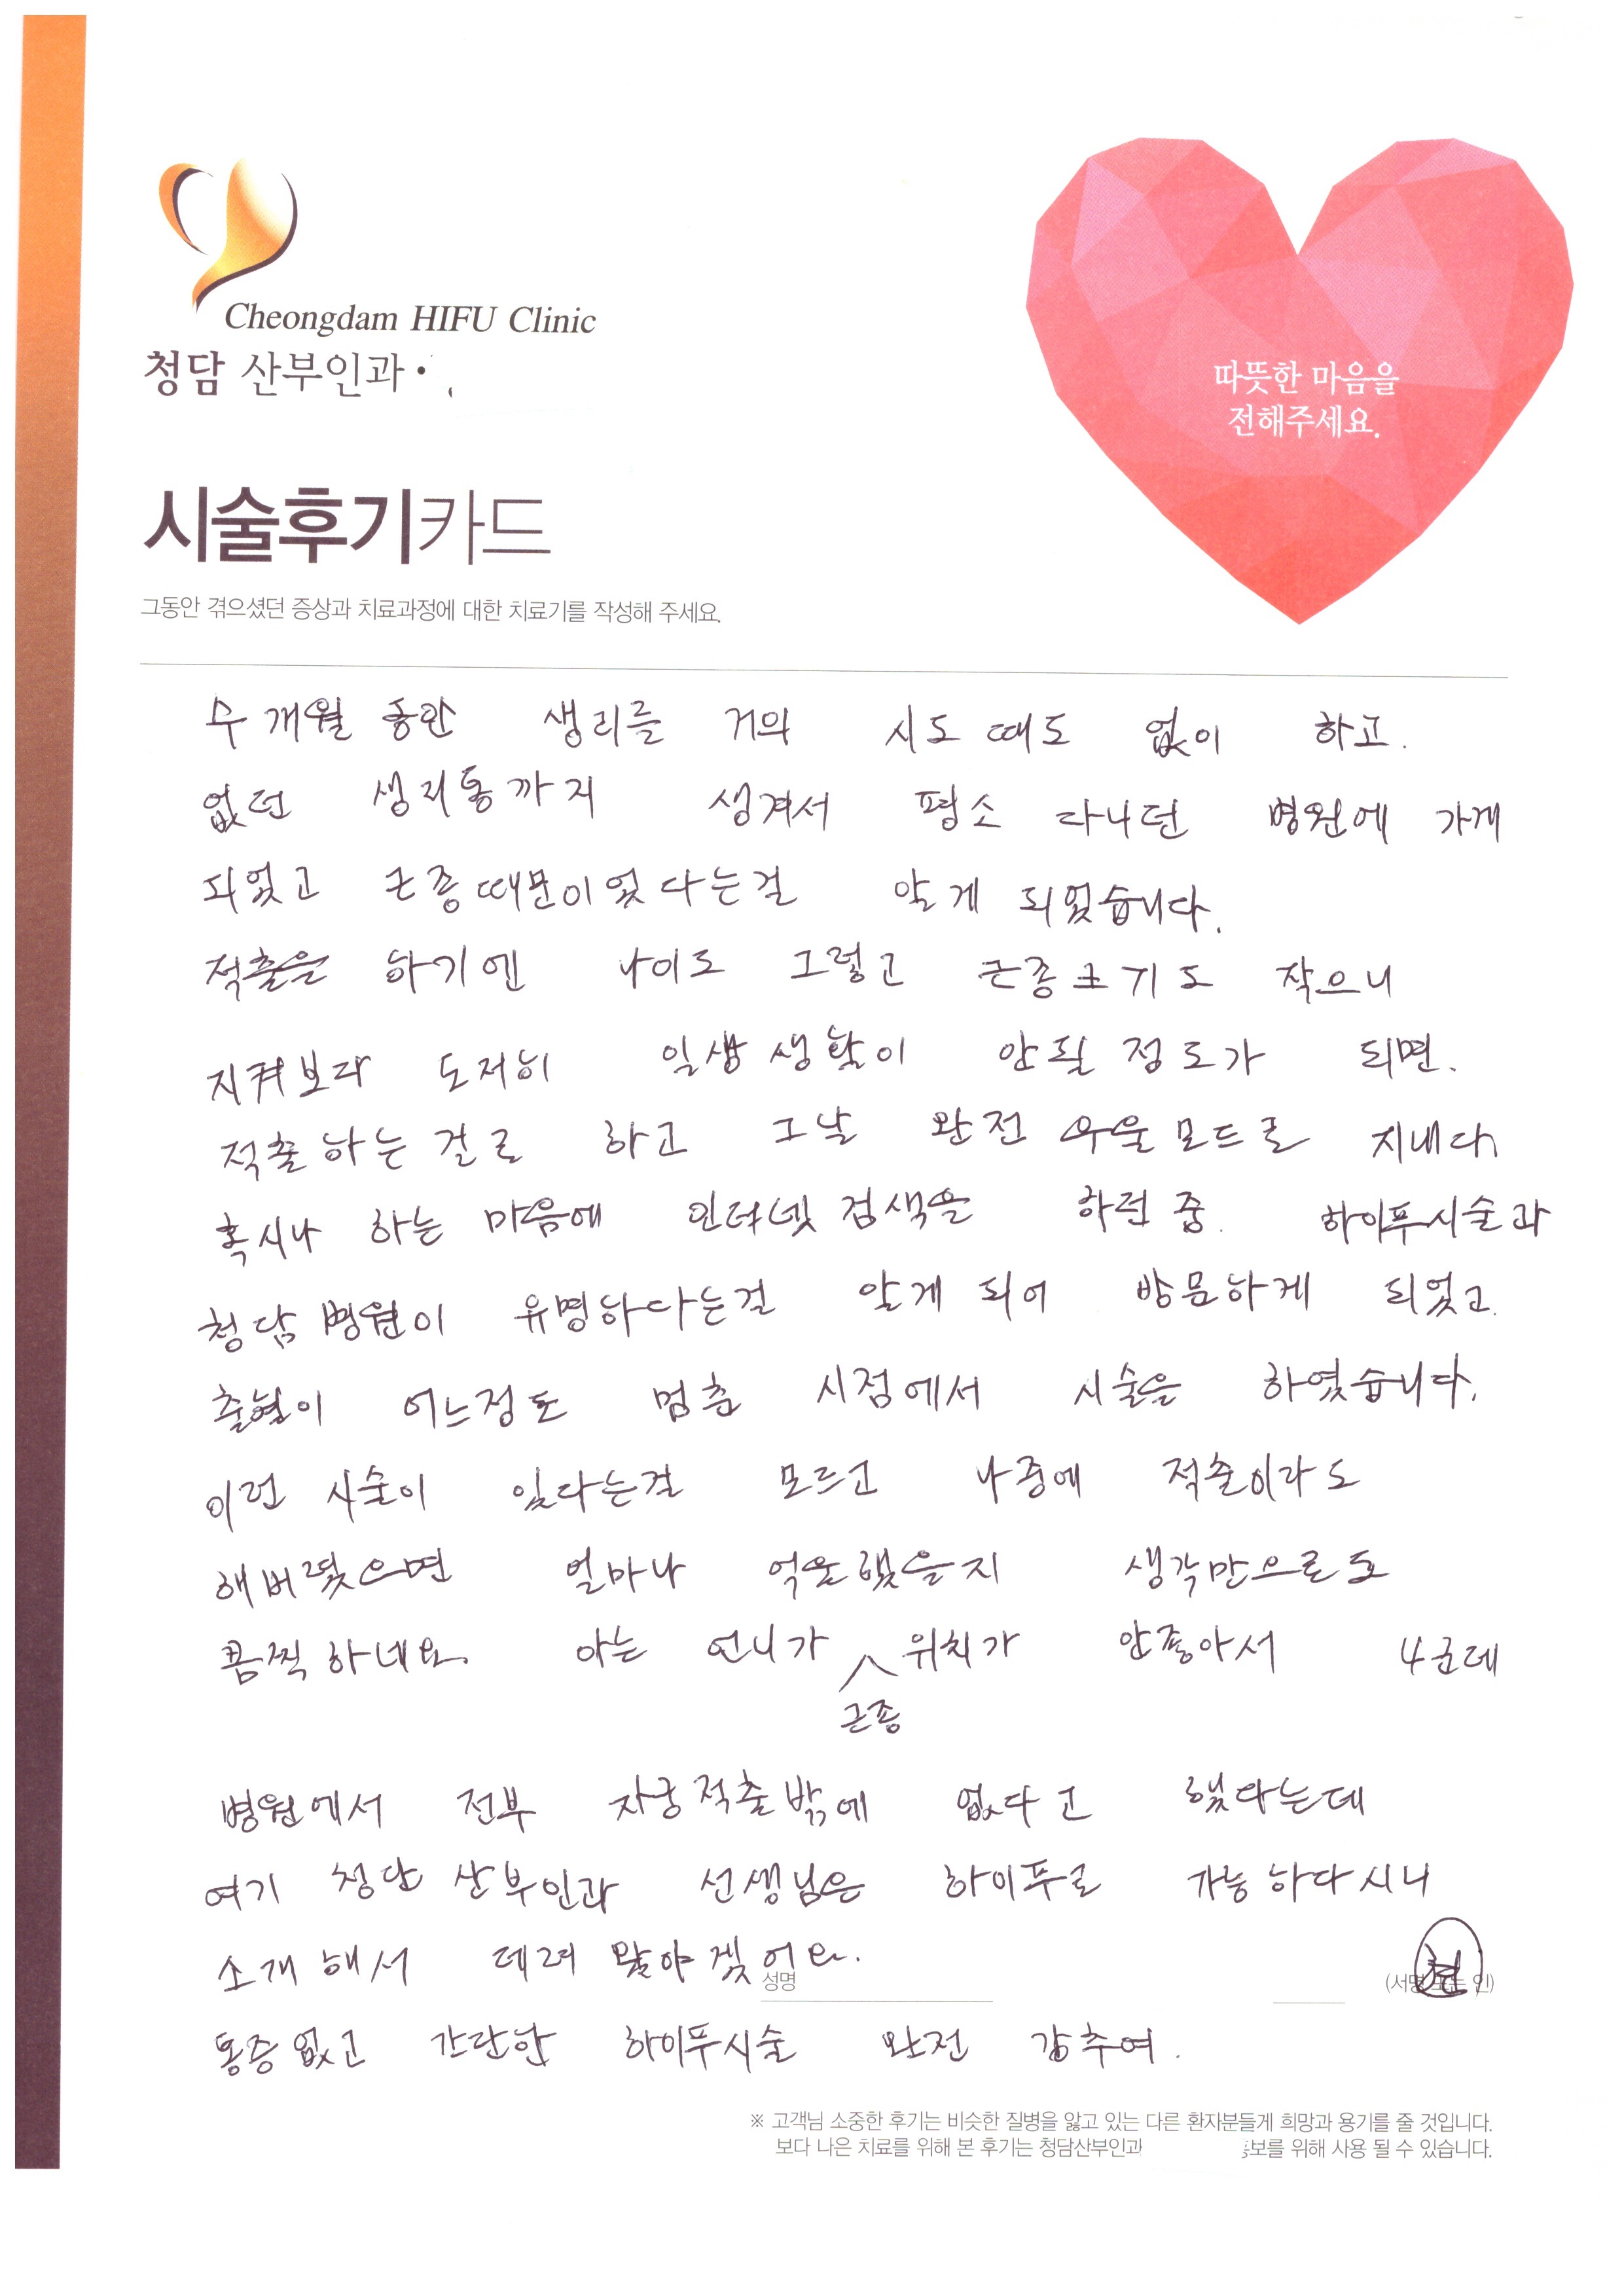 Cheongdam HIFU Clinic
청담 산부인과 •
따뜻한 마음을
전해주세요.
시술후기카드
그동안 겪으셨던 증상과 치료과정에 대한 치료기를 작성해 주세요.
수 개월 동안 생리를 거의 시도 때도 없이 하고.
없던 생리통까지 생겨서 평소 다니던 병원에 가게
되었고 근종때문이었다는걸 알게 되었습니다.
적출을 하기엔 나이도 그렇고 근종크기도 작으니
지켜보다 도저히 일생생활이 안될 정도가 되면.
적출하는 걸로 하고 그날 완전 우울모드로 지내다
혹시나 하는 마음에 인터넷 검색을 하던 중. 하이푸시술과
청담병원이 유명하다는걸 알게 되어 방문하게 되었고.
출혈이 어느정도 멈춘 시점에서 시술을 하였습니다.
이런 시술이 있다는걸 모르고 나중에 적출이라도
해버렸으면 얼마나 억울했을지 생각만으로도
끔찍하네요. 아는 언니가 위치가 안좋아서 4군데
근종
병원에서 전부 자궁적출밖에 없다고 했다는데
여기 청담 산부인과 선생님은 하이푸로 가능하다시니
소개해서 데려 와야겠어요.
성명 (서명 또는 인)
통증없고 간단한 하이푸시술 완전 강추여.
※ 고객님 소중한 후기는 비슷한 질병을 앓고 있는 다른 환자분들게 희망과 용기를 줄 것입니다.
보다 나은 치료를 위해 본 후기는 청담산부인과 보를 위해 사용 될 수 있습니다.